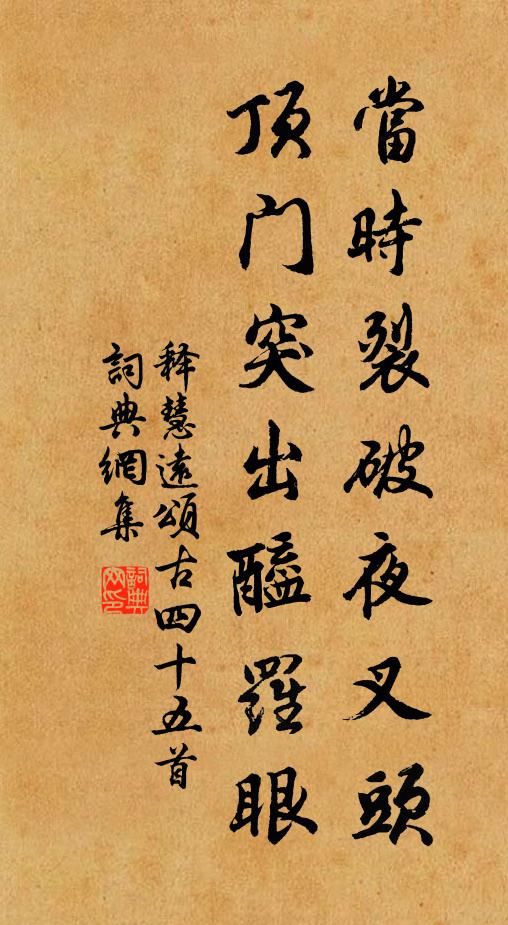 當時裂破夜叉頭
頂门突出醯羅眼
释慧遠頌古四十五首
詞典網集
詞典网印